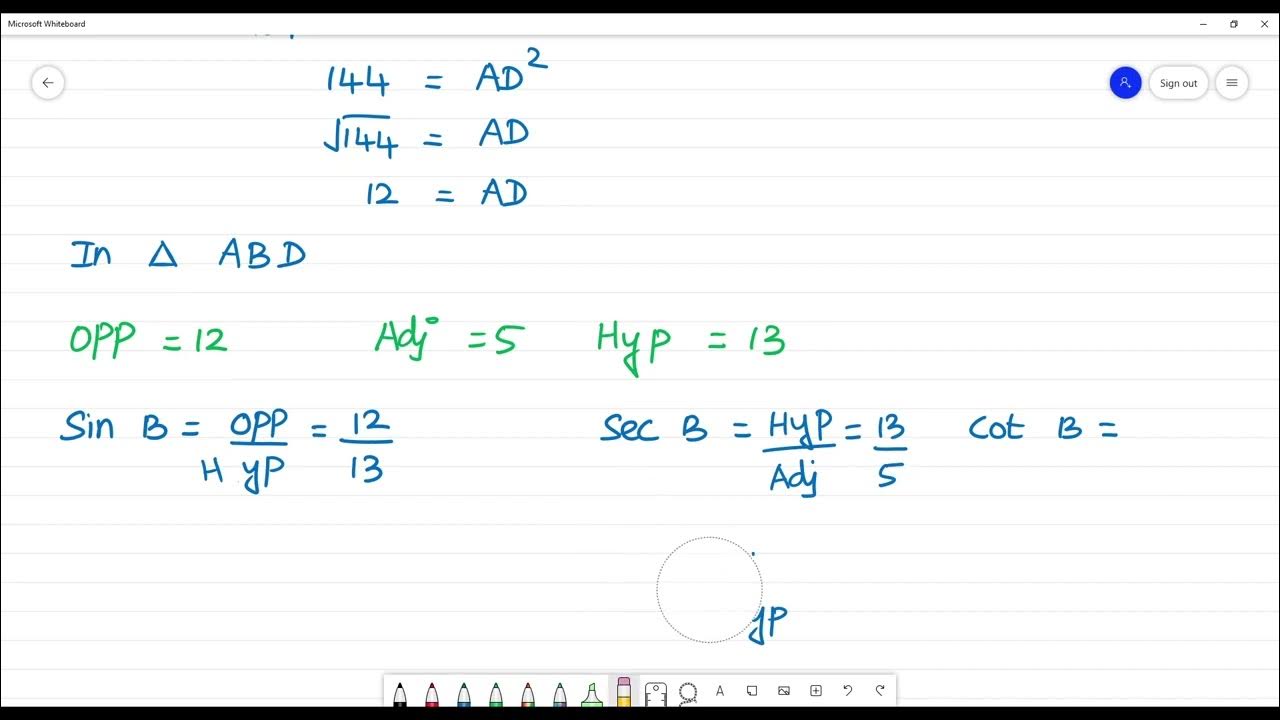 Microsoft Whiteboard
Sign out
144 = AD²
√144 = AD
12 = AD
In △ ABD
OPP = 12 Adj = 5 Hyp = 13
Sin B = OPP/HyP = 12/13 Sec B = HyP/Adj = 13/5 Cot B =
yP
A